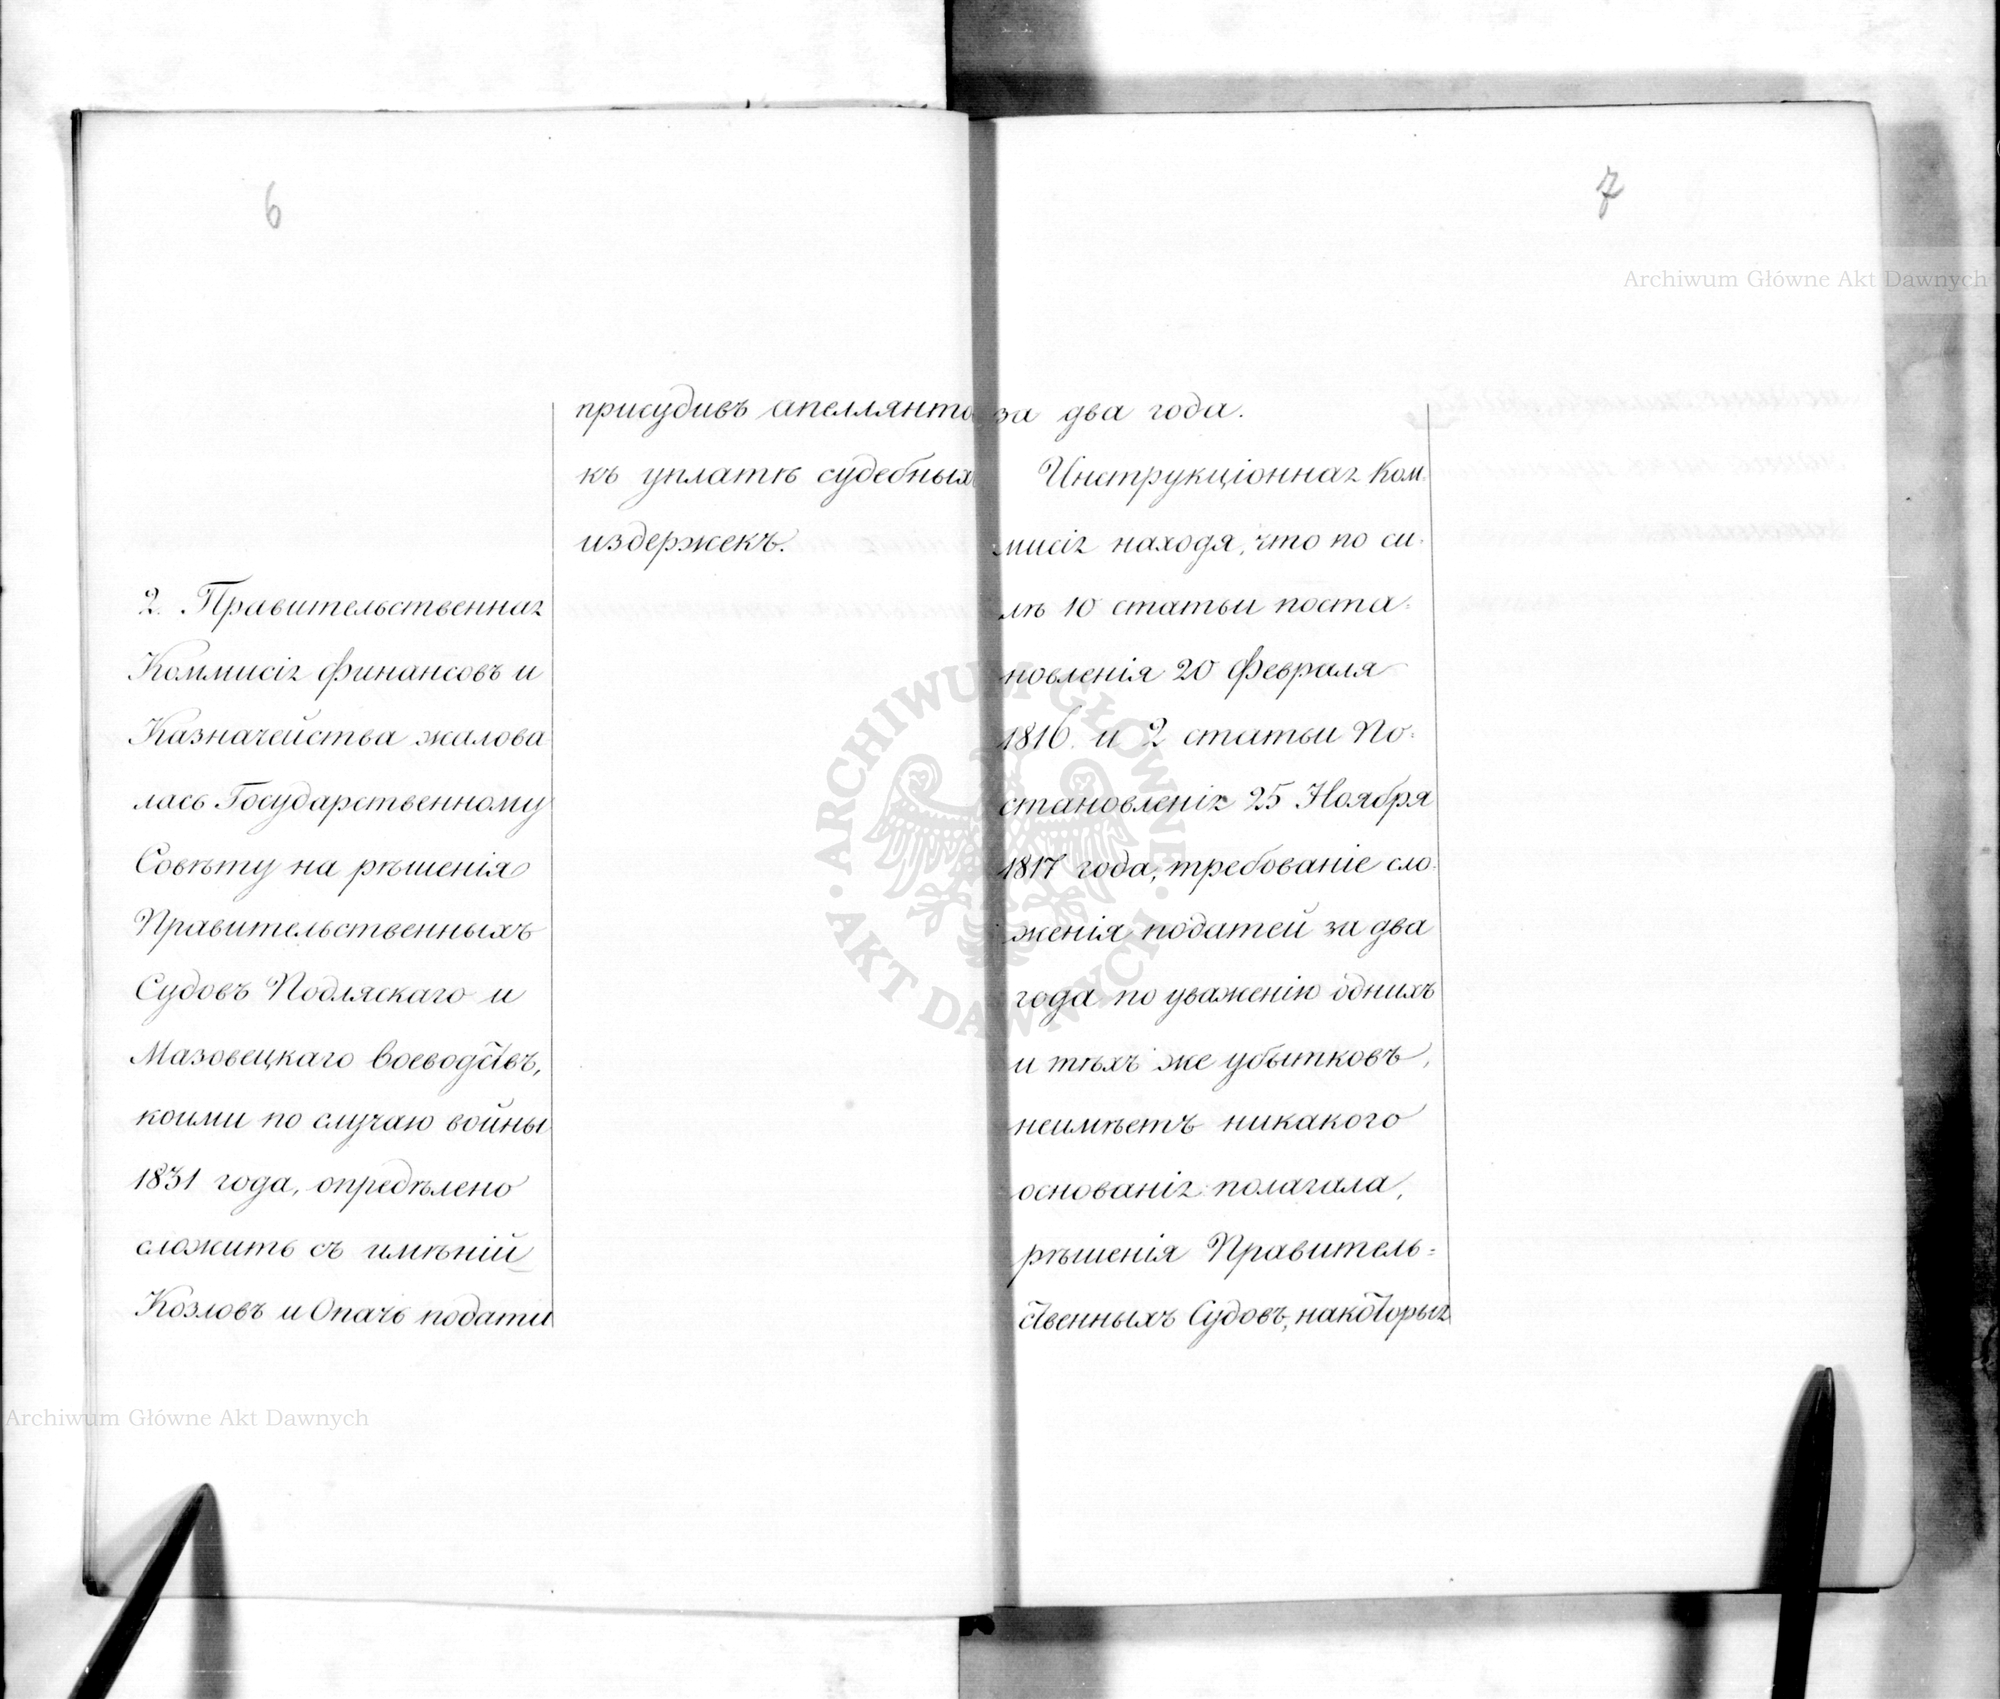 6
присудивъ апеллянта
къ уплатѣ судебныхъ
издержекъ.
2. Правительственная
Коммисія финансовъ и
Казначейства жалова
лась Государственному
Совѣту на рѣшенія
Правительственныхъ
Судовъ Подляскаго и
Мазовецкаго воеводствъ,
коими по случаю войны
1831 года, опредѣлено
сложить съ имѣній
Козловъ и Опачь подати
7
за два года.
Инструкціонная Ком-
мисія находя, что по си-
лѣ 10 статьи поста-
новленія 20 Февраля
1816. и 2 статьи По-
становленія 25 Ноября
1817 года, требованіе сло-
женія податей за два
года по уваженію однихъ
и тѣхъ же убытковъ,
неимѣетъ никакого
основанія полагала,
рѣшенія Правитель=
ственныхъ Судовъ, накоторыя
Archiwum Główne Akt Dawnych
ARCHIWUM GŁÓWNE • AKT DAWNYCH •
Archiwum Główne Akt Dawnych